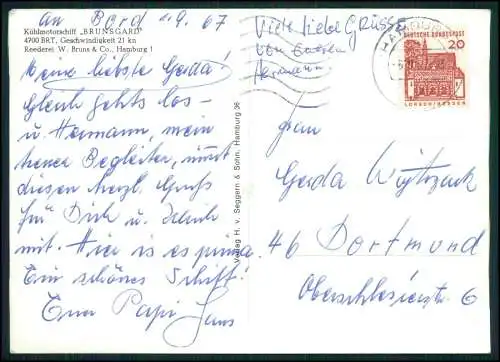 an Bord 1.9.67
Kühlmotorschiff „BRUNSGARD"
4700 BRT, Geschwindigkeit 21 kn
Reederei W. Bruns & Co., Hamburg 1
Meine liebste Gerda!
Gleich gehts los -
u. Hermann, mein
treuer Begleiter, nimmt
diesen herzl. Gruß
für Dich u.
mit. Hier ist es prima.
Ein schönes Schiff!
Euer Papi Hans
Viele liebe GRÜSSE
von
Hermann
Verlag H. v. Seggern & Sohn, Hamburg 36
HAMBURG
DEUTSCHE BUNDESPOST
20
LORSCH/HESSEN
Frau
Gerda
46 Dortmund
Oberschlesierstr. 6